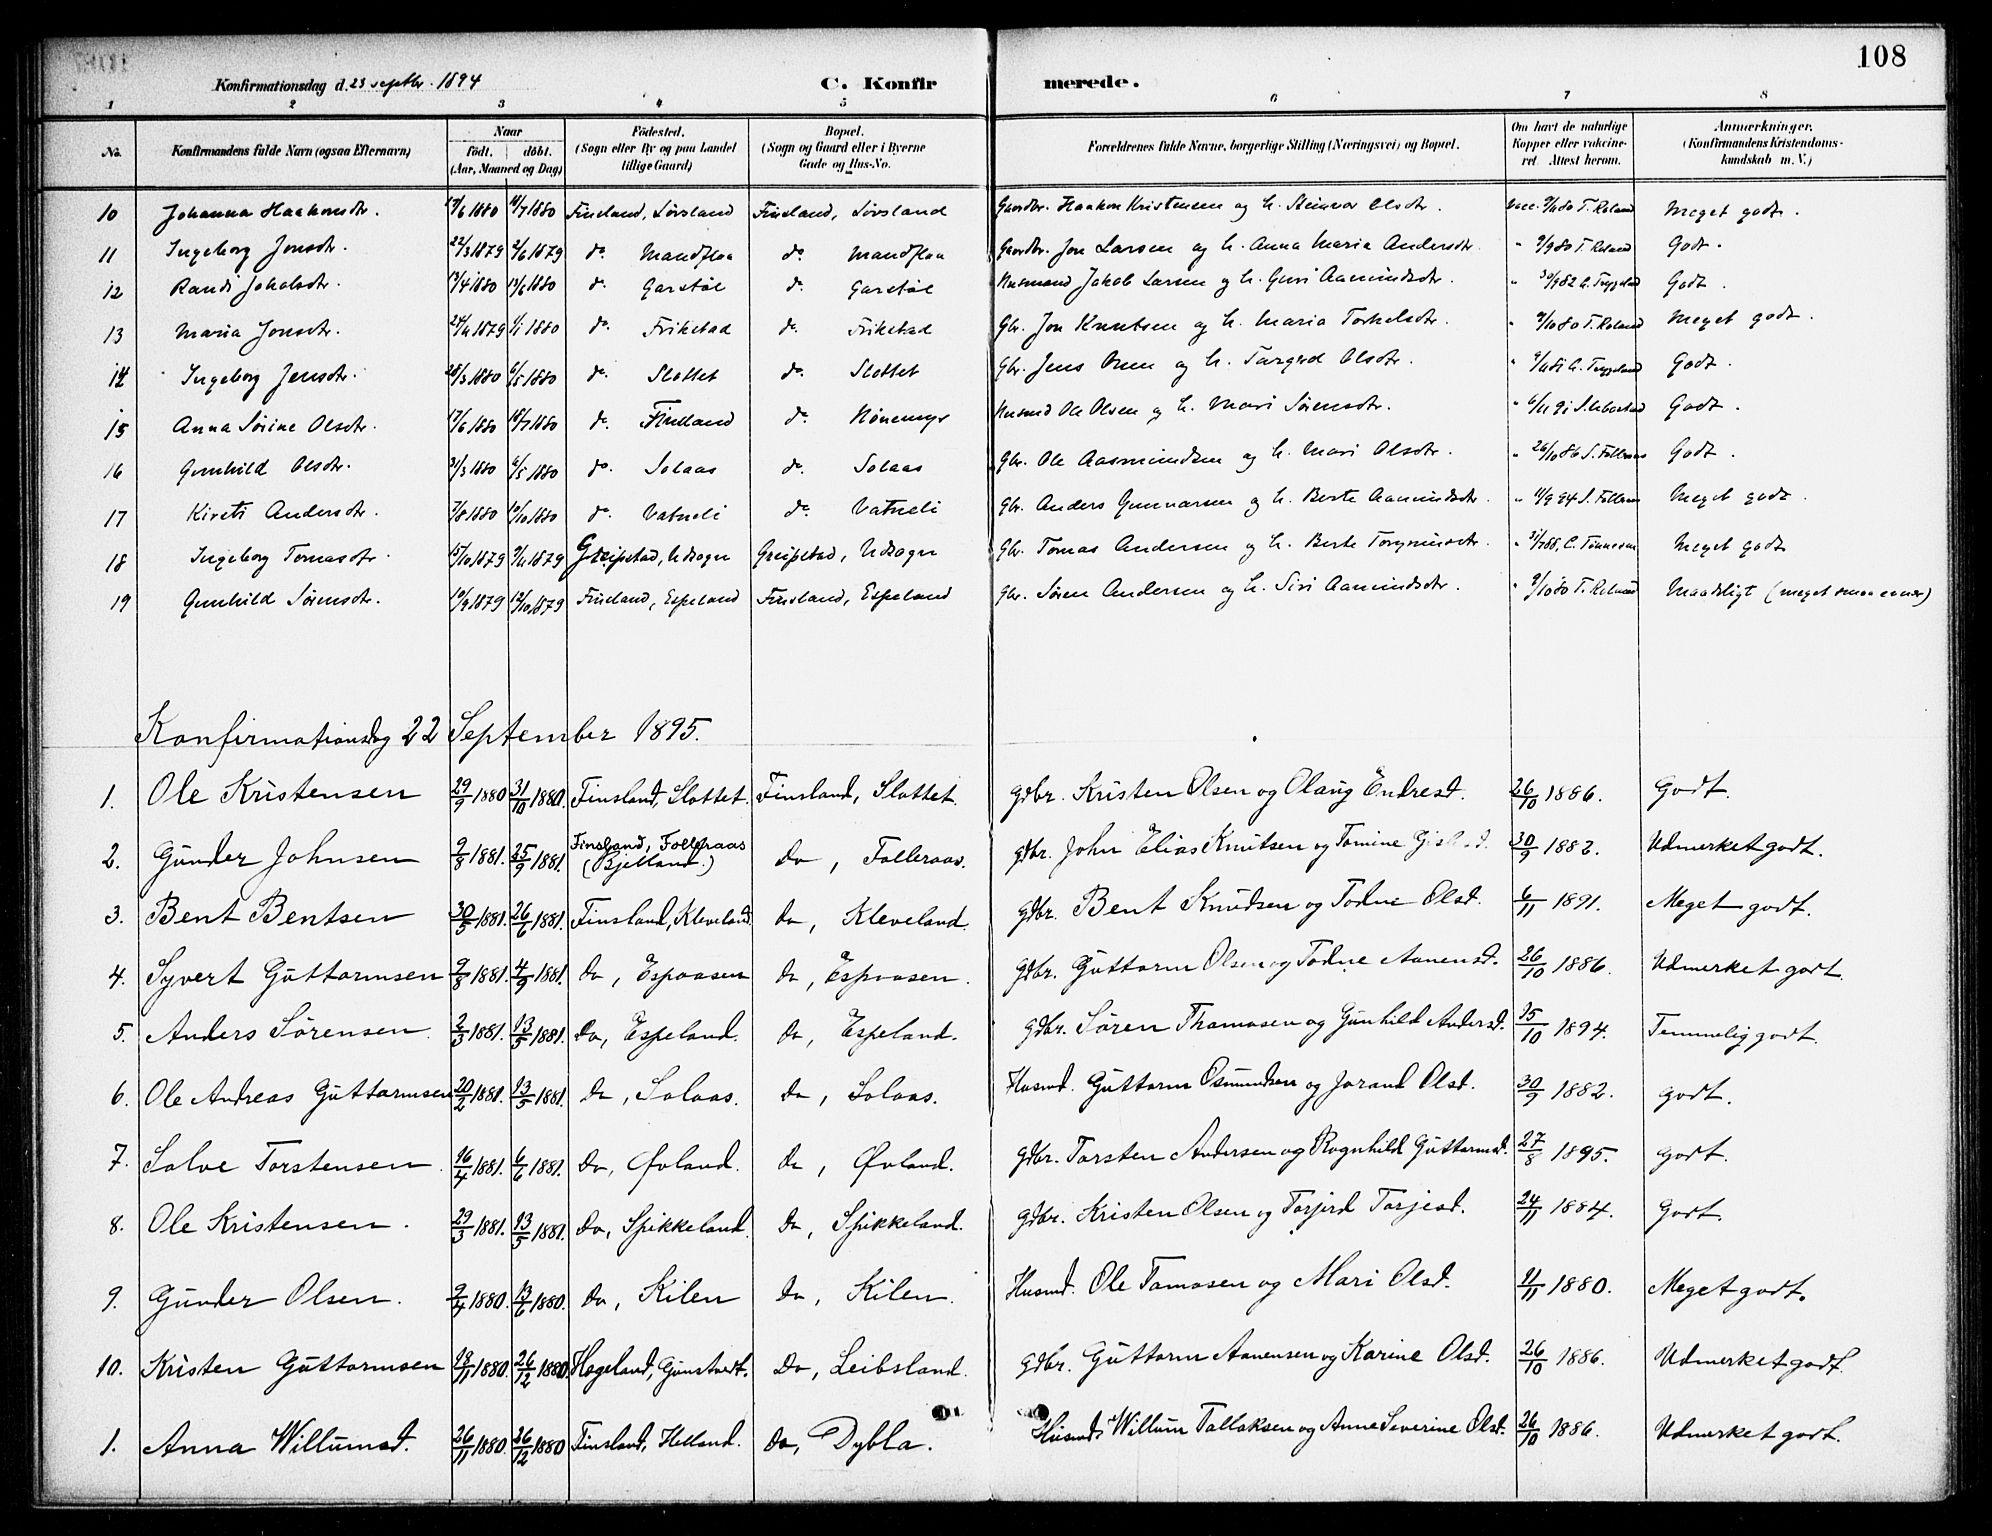 108
Konfirmationsdag d. 23 septbr. 1894 C. Konfirmerede.
1 2 3 4 5 6 7 8
No. Konfirmandens fulde Navn (ogsaa Efternavn) Naar födt. döbt. (Aar, Maaned og Dag) Födested. (Sogn eller By og paa Landet tillige Gaard) Bopæl. (Sogn og Gaard eller i Byerne Gade og Hus-No. Forældrenes fulde Navne, borgerlige Stilling (Næringsvei) og Bopæl. Om havt de naturlige Kopper eller vakcineret. Attest herom. Anmærkninger. (Konfirmandens Kristendomskundskab m. V.)
10 Johanna Haakonsdtr. 1880 1880 Finsland, Lövsland Finsland, Lövsland Gaardbr. Haakon Kristensen og h. Steinvor Olsdtr. vacc. T. Roland Meget godt.
11 Ingeborg Jonsdtr. 22/3 1879 2/6 1879 do. Mandflaa do. Mandflaa Gaardbr. Jon Larsen og h. Anna Maria Andersdtr. " 9/9 80 T. Roland Godt.
12 Randi Jakobsdtr. 1880 13/6 1880 do. Garstöl do. Garstöl Husmand Jakob Larsen og h. Guri Aamundsdtr. " 30/9 82 Godt.
13 Maria Jonsdtr. 24/11 1879 1/1 1880 do. Frikstad do. Frikstad Gbr. Jon Knutsen og h. Maria Torkelsdtr. " 9/10 80 T. Roland Meget godt.
14 Ingeborg Jensdtr. 28/3 1880 6/5 1880 do. Slottet do. Slottet Gbr. Jens Osen og h. Targerd Olsdtr. " Godt.
15 Anna Sörine Olsdtr. 17/6 1880 18/7 1880 do. do. Hönemyr Husmd Ole Olsen og h. Mari Sörensdtr. " 6/11 91 Godt.
16 Gunhild Olsdtr. 31/3 1880 6/5 1880 do. Solaas do. Solaas Gbr. Ole Aasmundsen og h. Mari Olsdtr. " 26/10 86 Godt.
17 Kirsti Andersdtr. 7/8 1880 10/10 1880 do. Vatneli do. Vatneli Gbr. Anders Gunnarsen og h. Berte Aamundsdtr. " 94 Meget godt.
18 Ingeborg Tomasdtr. 15/10 1879 9/11 1879 Greipstad, Udsogn Greipstad, Udsogn Gbr. Tomas Andersen og h. Berte " 88, C. Tönnesen Meget godt.
19 Gunhild Sörensdtr. 10/9 1879 12/10 1879 Finsland, Espeland Finsland, Espeland Gbr. Sören Andersen og h. Siri Aamundsdtr. " 9/10 80 T. Roland Maadeligt (meget smaa evner)
Konfirmationsdag 22 September 1895.
1. Ole Kristensen 29/9 1880 31/10 1880. Finsland, Slottet. Finsland, Slottet. gdbr. Kristen Olsen og Olaug Endresd. 26/10 1886. Godt.
2. Gunder Johnsen 9/8 1881. 25/9 1881. Finsland, Folleraas (Bjelland.) Do, Folleraas. gdbr. John Elias Knutsen og Tomine 30/9 1882. Udmerket godt.
3. Bent Bentsen 30/5 1881. 26/6 1881. Finsland, Kleveland Do, Kleveland. gdbr. Bent Knudsen og Todne Olsd. 6/11 1891. Meget godt.
4. Syvert Guttormsen 9/8 1881. 4/9 1881. Do, Espaasen Do, Espaasen. gdbr. Guttorm Olsen og Todne Aanensd. 26/10 1886. Udmerket godt.
5. Anders Sörensen 2/3 1881. 13/5 1881. Do, Espeland. Do, Espeland. gdbr. Sören Thomasen og Gunhild Andersd. 15/10 1894. Temmelig godt.
6. Ole Andreas Guttormsen 20/2 1881. 13/5 1881. Do, Solaas. Do, Solaas. Husmd. Guttorm Osmundsen og Jorand Olsd. 30/9 1882. godt.
7. Salve Torstensen. 16/4 1881. 6/6 1881. Do, Øvland. Do, Øvland. gdbr. Torsten Andersen og Rognhild Guttormsd. 27/8 1895. godt.
8. Ole Kristensen. 29/3 1881. 13/5 1881. Do, Spikkeland. Do, Spikkeland. gdbr. Kristen Olsen og Torjerd Torjesd. 24/11 1884. Godt.
9. Gunder Olsen. 9/4 1880. 13/6 1880. Do, Kilen Do, Kilen. Husmd. Ole Tomasen og Mari Olsd. 11/11 1880. Meget godt.
10. Kristen Guttormsen 19/11 1880. 26/12 1880. Hægeland, Gunstveit. Do, Leibsland. gdbr. Guttorm Aanensen og Karine Olsd. 26/10 1886. Udmerket godt.
1. Anna Willumsd. 26/11 1880. 26/12 1880 Finsland, Helland. Do, Dybla. Husmd. Willum Tallaksen og Anne Severine Olsd. 26/10 1886. Udmerket godt.